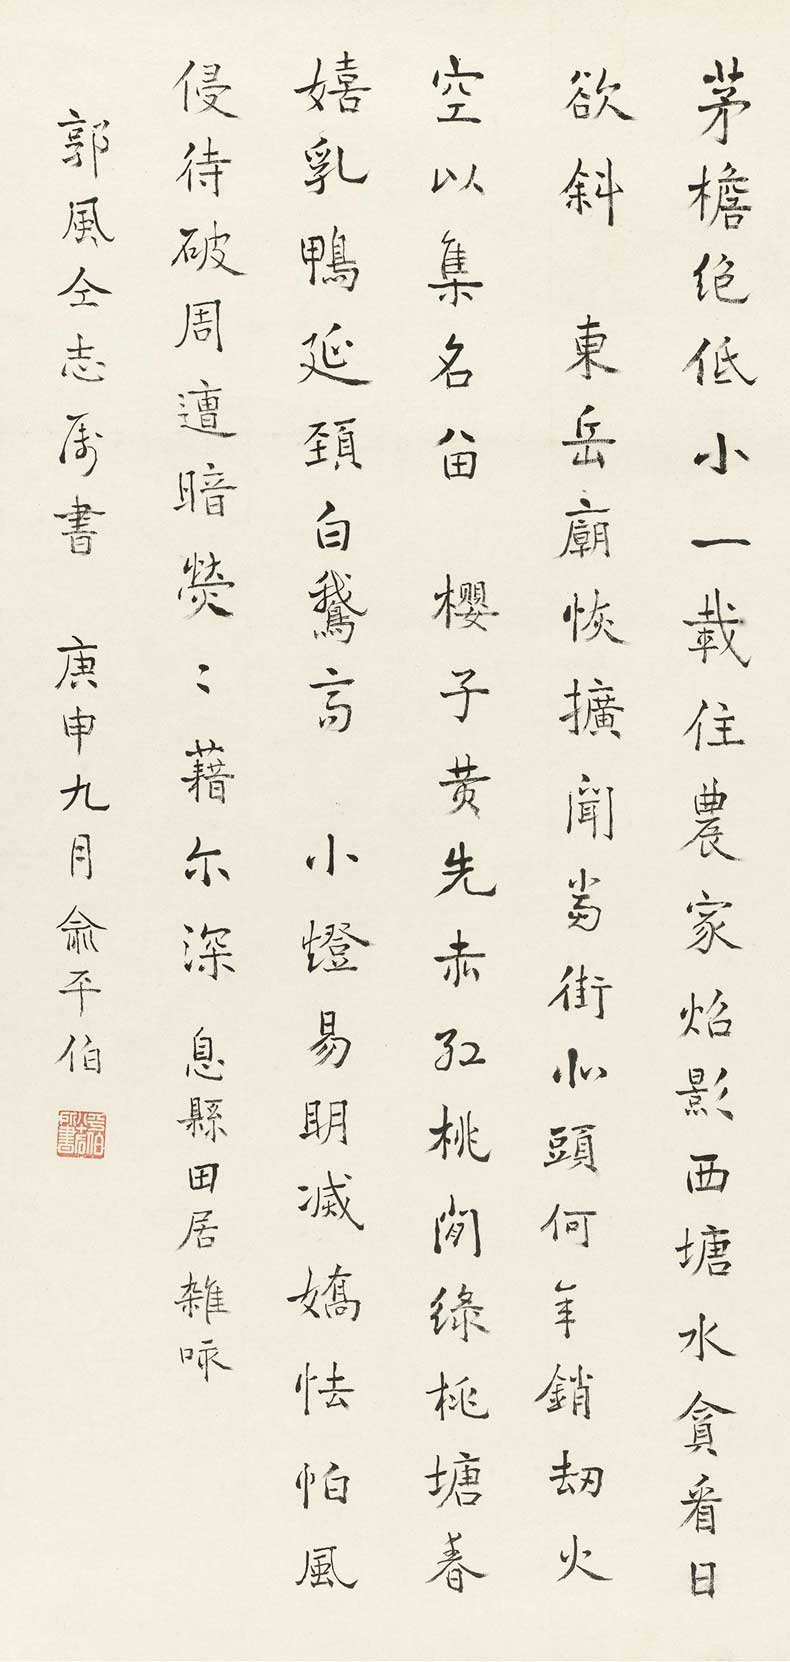 茅檐绝低小一載住農家炤影西塘水貪看日
欲斜 東岳廟恢擴聞當街北頭何年銷刼火
空以集名留 櫻子黄先赤紅桃間綠桃塘春
嬉乳鴨延頸白鵝高 小燈易明滅嬌怯怕風
侵待破周遭暗熒〻藉尔深 息縣田居雜咏
郭風仝志属書 庚申九月俞平伯